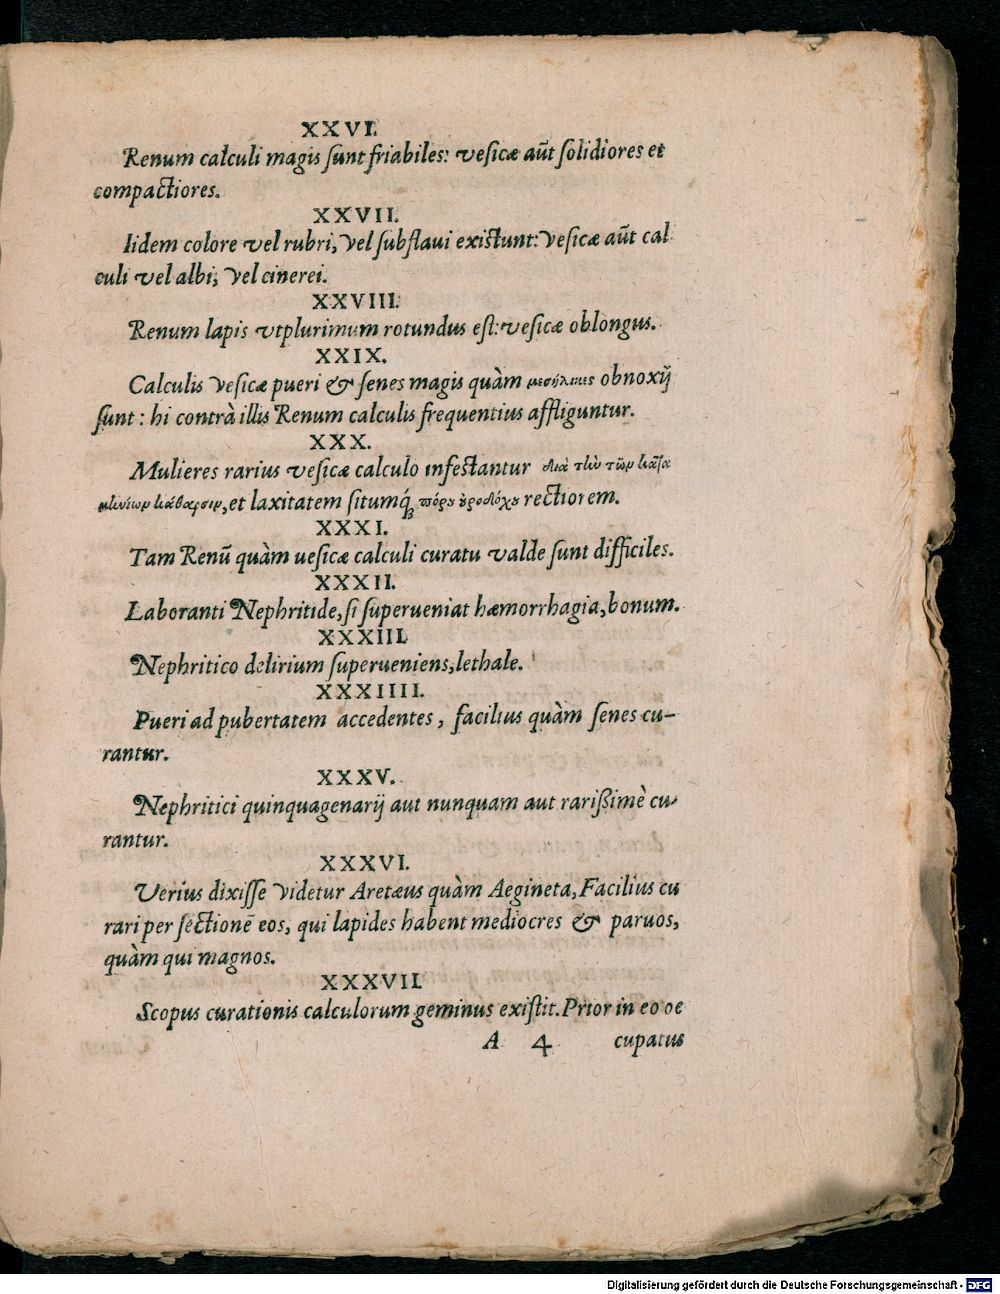 XXVI.
Renum calculi magis sunt friabiles: vesicæ aūt solidiores et
compactiores.
XXVII.
Iidem colore vel rubri, vel subflaui existunt: vesicæ aūt cal
culi vel albi, vel cinerei.
XXVIII.
Renum lapis vtplurimum rotundus est: vesicæ oblongus.
XXIX.
Calculis vesicæ pueri & senes magis quàm obnoxij
sunt: hi contrà illis Renum calculis frequentius affliguntur.
XXX.
Mulieres rarius vesicæ calculo infestantur διὰ τὴν τῶν
κάθαρσιν, et laxitatem situmq́; πόρου οὐροδόχου rectiorem.
XXXI.
Tam Renū quàm uesicæ calculi curatu valde sunt difficiles.
XXXII.
Laboranti Nephritide, si superueniat hæmorrhagia, bonum.
XXXIII.
Nephritico delirium superueniens, lethale.
XXXIIII.
Pueri ad pubertatem accedentes, facilius quàm senes cu-
rantur.
XXXV.
Nephritici quinquagenarij aut nunquam aut rarißimè cu-
rantur.
XXXVI.
Verius dixisse videtur Aretæus quàm Aegineta, Facilius cu
rari per sectionē eos, qui lapides habent mediocres & paruos,
quàm qui magnos.
XXXVII.
Scopus curationis calculorum geminus existit. Prior in eo oc
A 4 cupatus
Digitalisierung gefördert durch die Deutsche Forschungsgemeinschaft - DFG